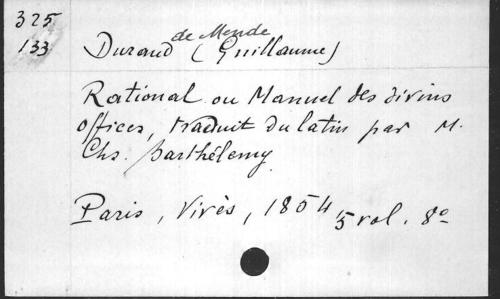 325
133
de Mende
Durand (Guillaume)
Rational ou Manuel des divins
offices, traduit du latin par M.
Chs. Barthélemy
Paris, Vivès, 1854, 5 vol. 8º